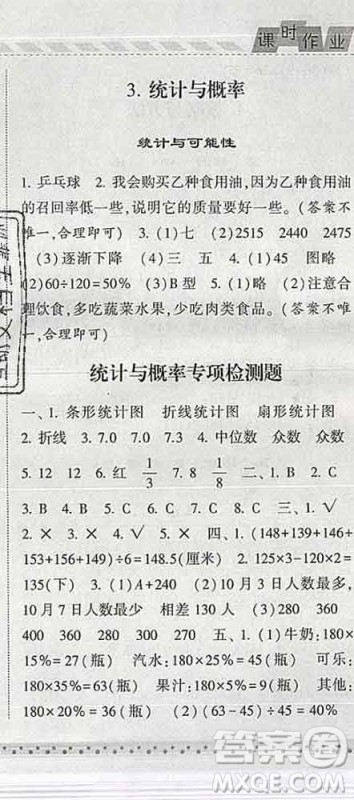 课时作业
3. 统计与概率
统计与可能性
1. 乒乓球 2. 我会购买乙种食用油,因为乙种食用油
的召回率低一些,说明它的质量好一些。(答案不
唯一,合理即可) 3. (1)七 (2)2515 2440 2475
(3)逐渐下降 (4)三 五 4. (1)45 图略
(2)60÷120=50% (3)B型 5. (1)略 (2)注意合
理饮食,多吃蔬菜水果,少吃肉类食品。(答案不唯
一,合理即可)
统计与概率专项检测题
一、1. 条形统计图 折线统计图 扇形统计图
2. 折线 3. 7.0 7.3 4. 中位数 众数 众数
5. 12 12 6. 红 1/3 7. 8 1/8 二、1. B 2. B
3. B 4. B 5. C 6. C 7. C 三、1. √
2. × 3. × 4. √ 5. × 四、1. (148+139+146+
153+156+149)÷6=148.5(厘米) 2. 125×3-120×2=
135(下) 3. (1)A+240 (2)10月2日人数最多,
10月7日人数最少 相差130人 (3)280 360
400 360 280 60 五、1. (1)牛奶:180×
15%=27(瓶) 汽水:180×25%=45(瓶) 可乐:
180×35%=63(瓶) 果汁:180×5%=9(瓶) 其他:
180×20%=36(瓶) (2)(63-45)÷45=40%
答案圈
MXQE.COM